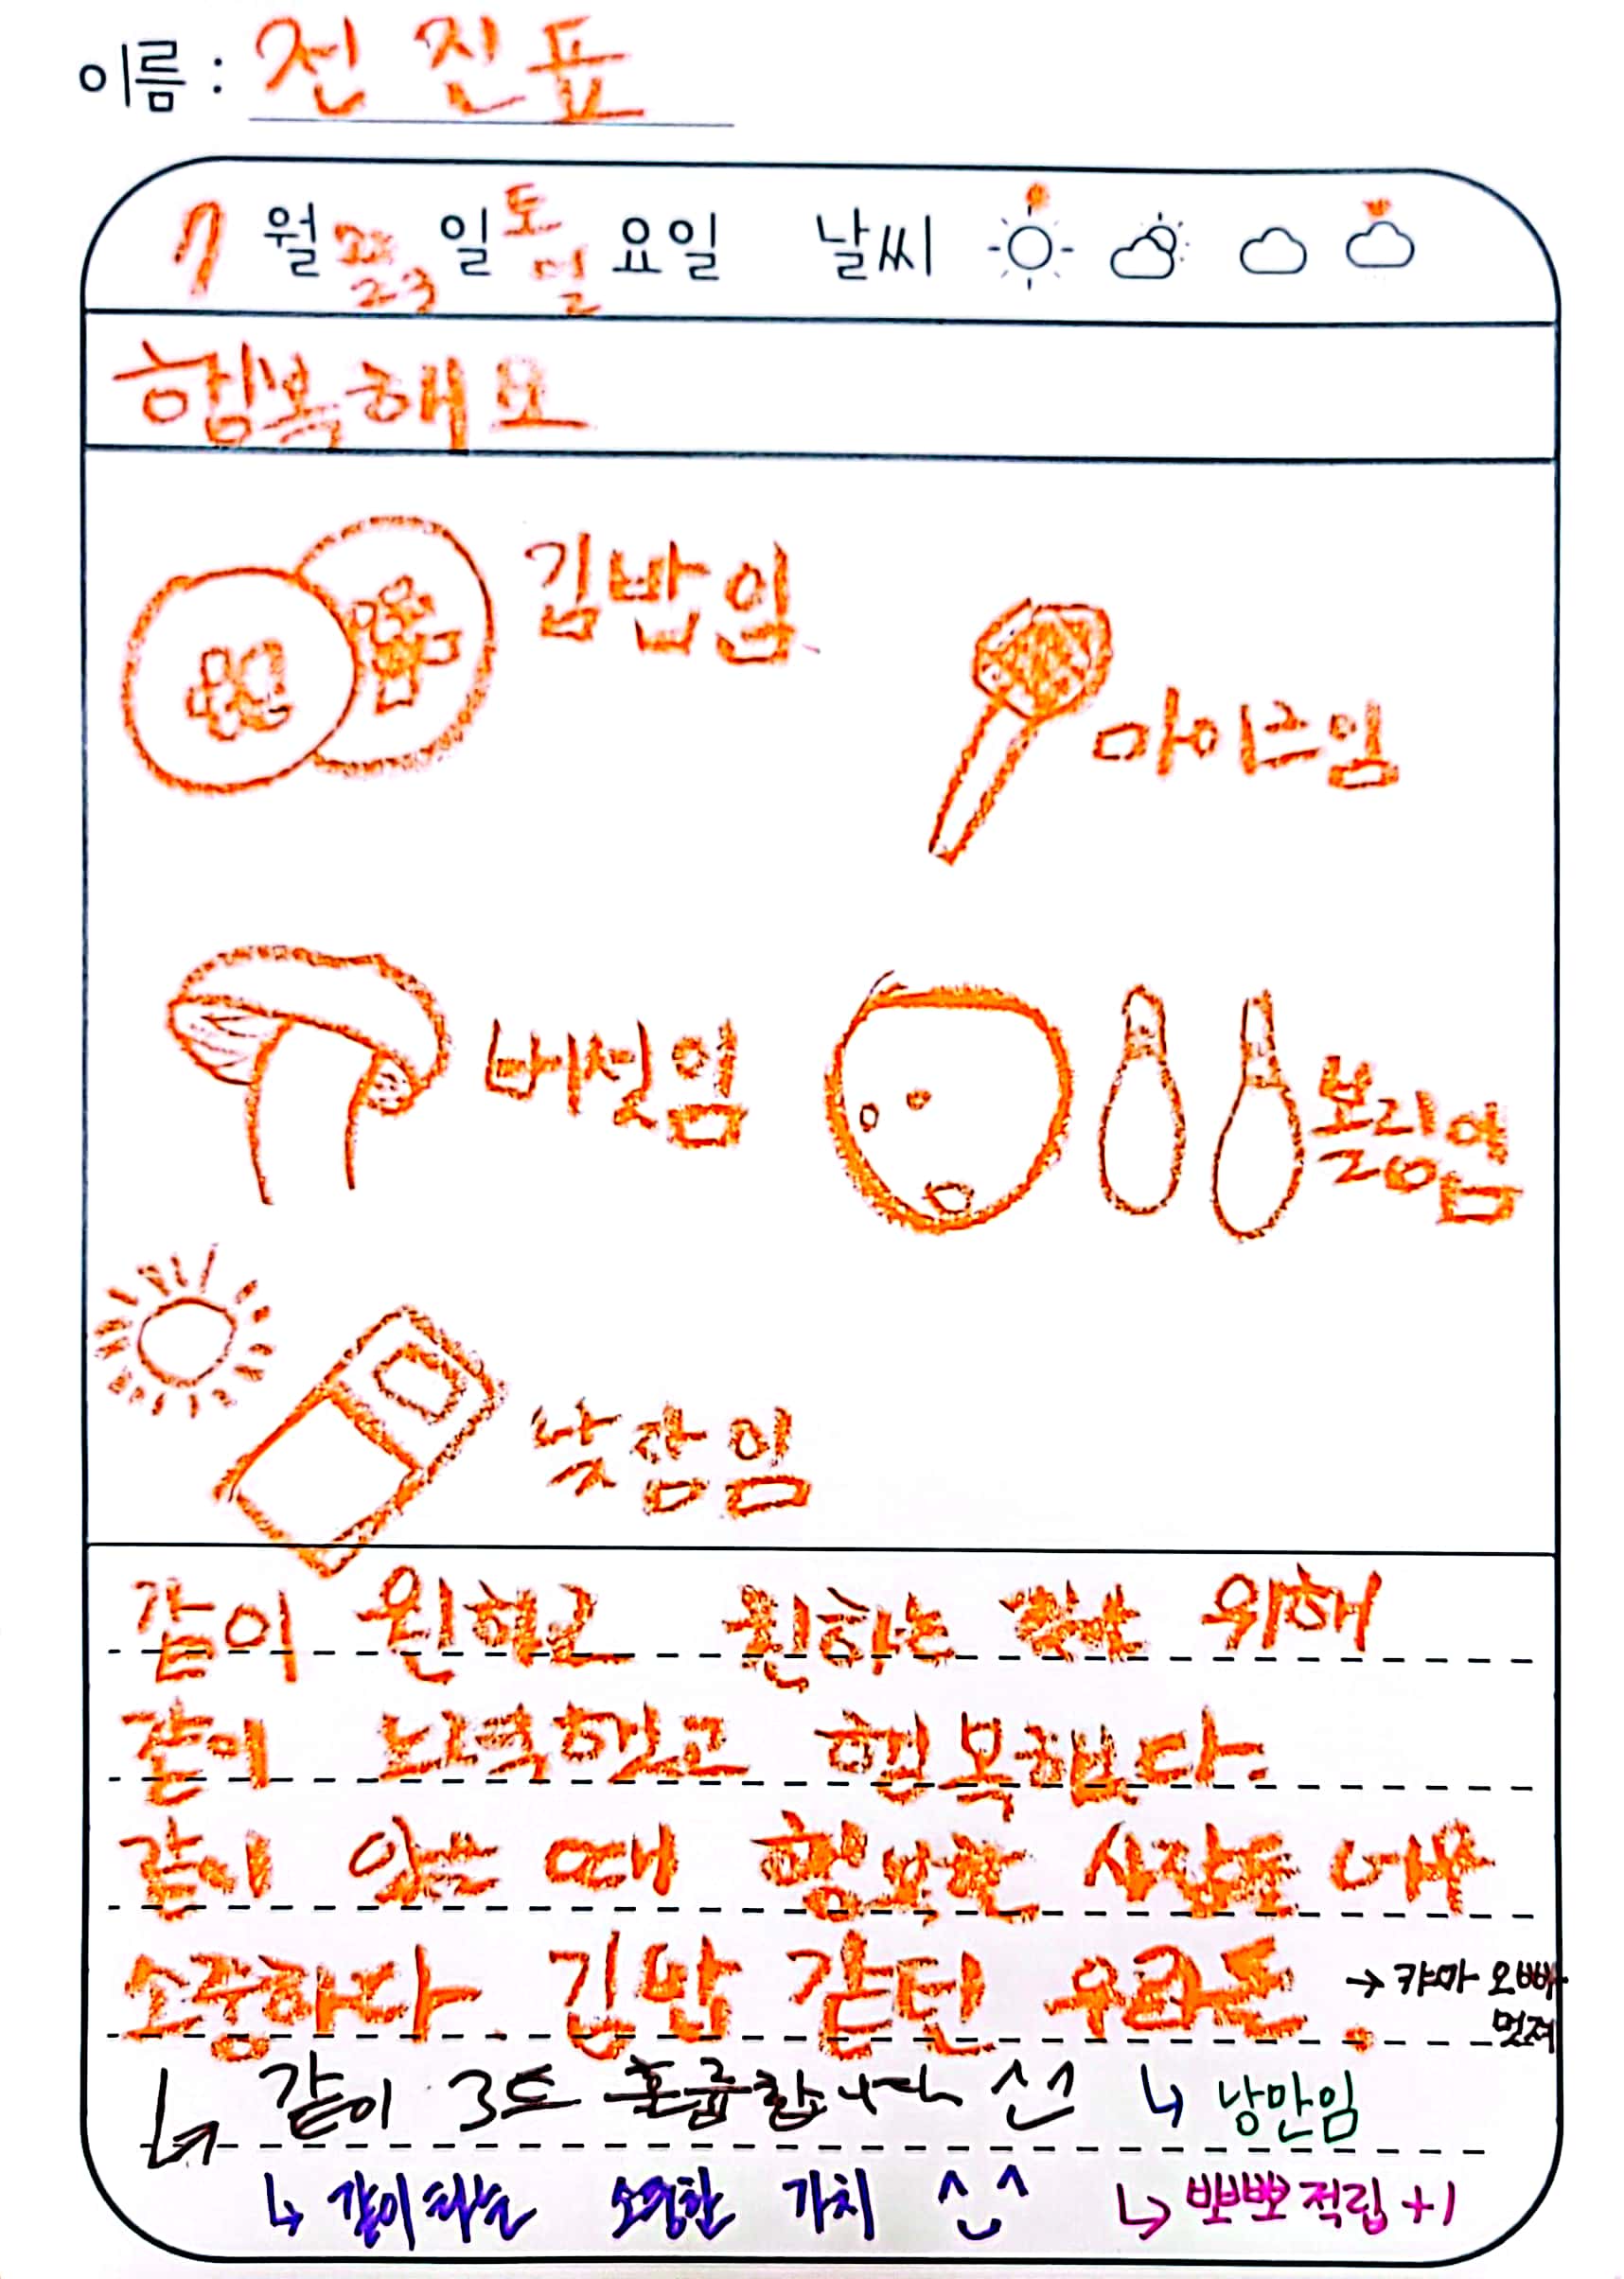 이름 : 전 진표
7 월 22 23 일 토 일 요일 날씨
행복해요
김밥임
마이크임
버섯임
볼링임
낮잠임
같이 원하고 위해
같이 노력했고 행복했다.
같이 있는 때 행복한 너무
소중하다. 김밥 같던 우리들. → 캬아 오빠
멋져
↳ 같이 3도 흡합니다 ^^ ↳ 낭만임
↳ 같이하는 소중한 가치 ^^ ↳ 뽀뽀 적립 +1